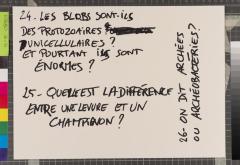 24. LES BLOBS SONT-ILS
DES PROTOZOAIRES
UNICELLULAIRES ?
ET POURTANT ILS SONT
ÉNORMES ?
25 - QUELLE EST LA DIFFÉRENCE
ENTRE UNE LEVURE ET UN
CHAMPIGNON ?
26 - ON DIT ARCHÉES
OU ARCHÉOBACTÉRIES ?